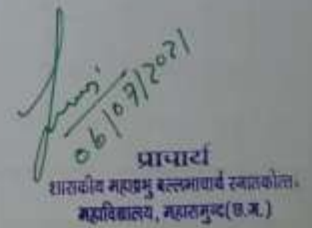 06/07/2021
प्राचार्य
शासकीय महाप्रभु वल्लभाचार्य स्नातकोत्त.
महाविद्यालय, महासमुन्द(छ.ग.)